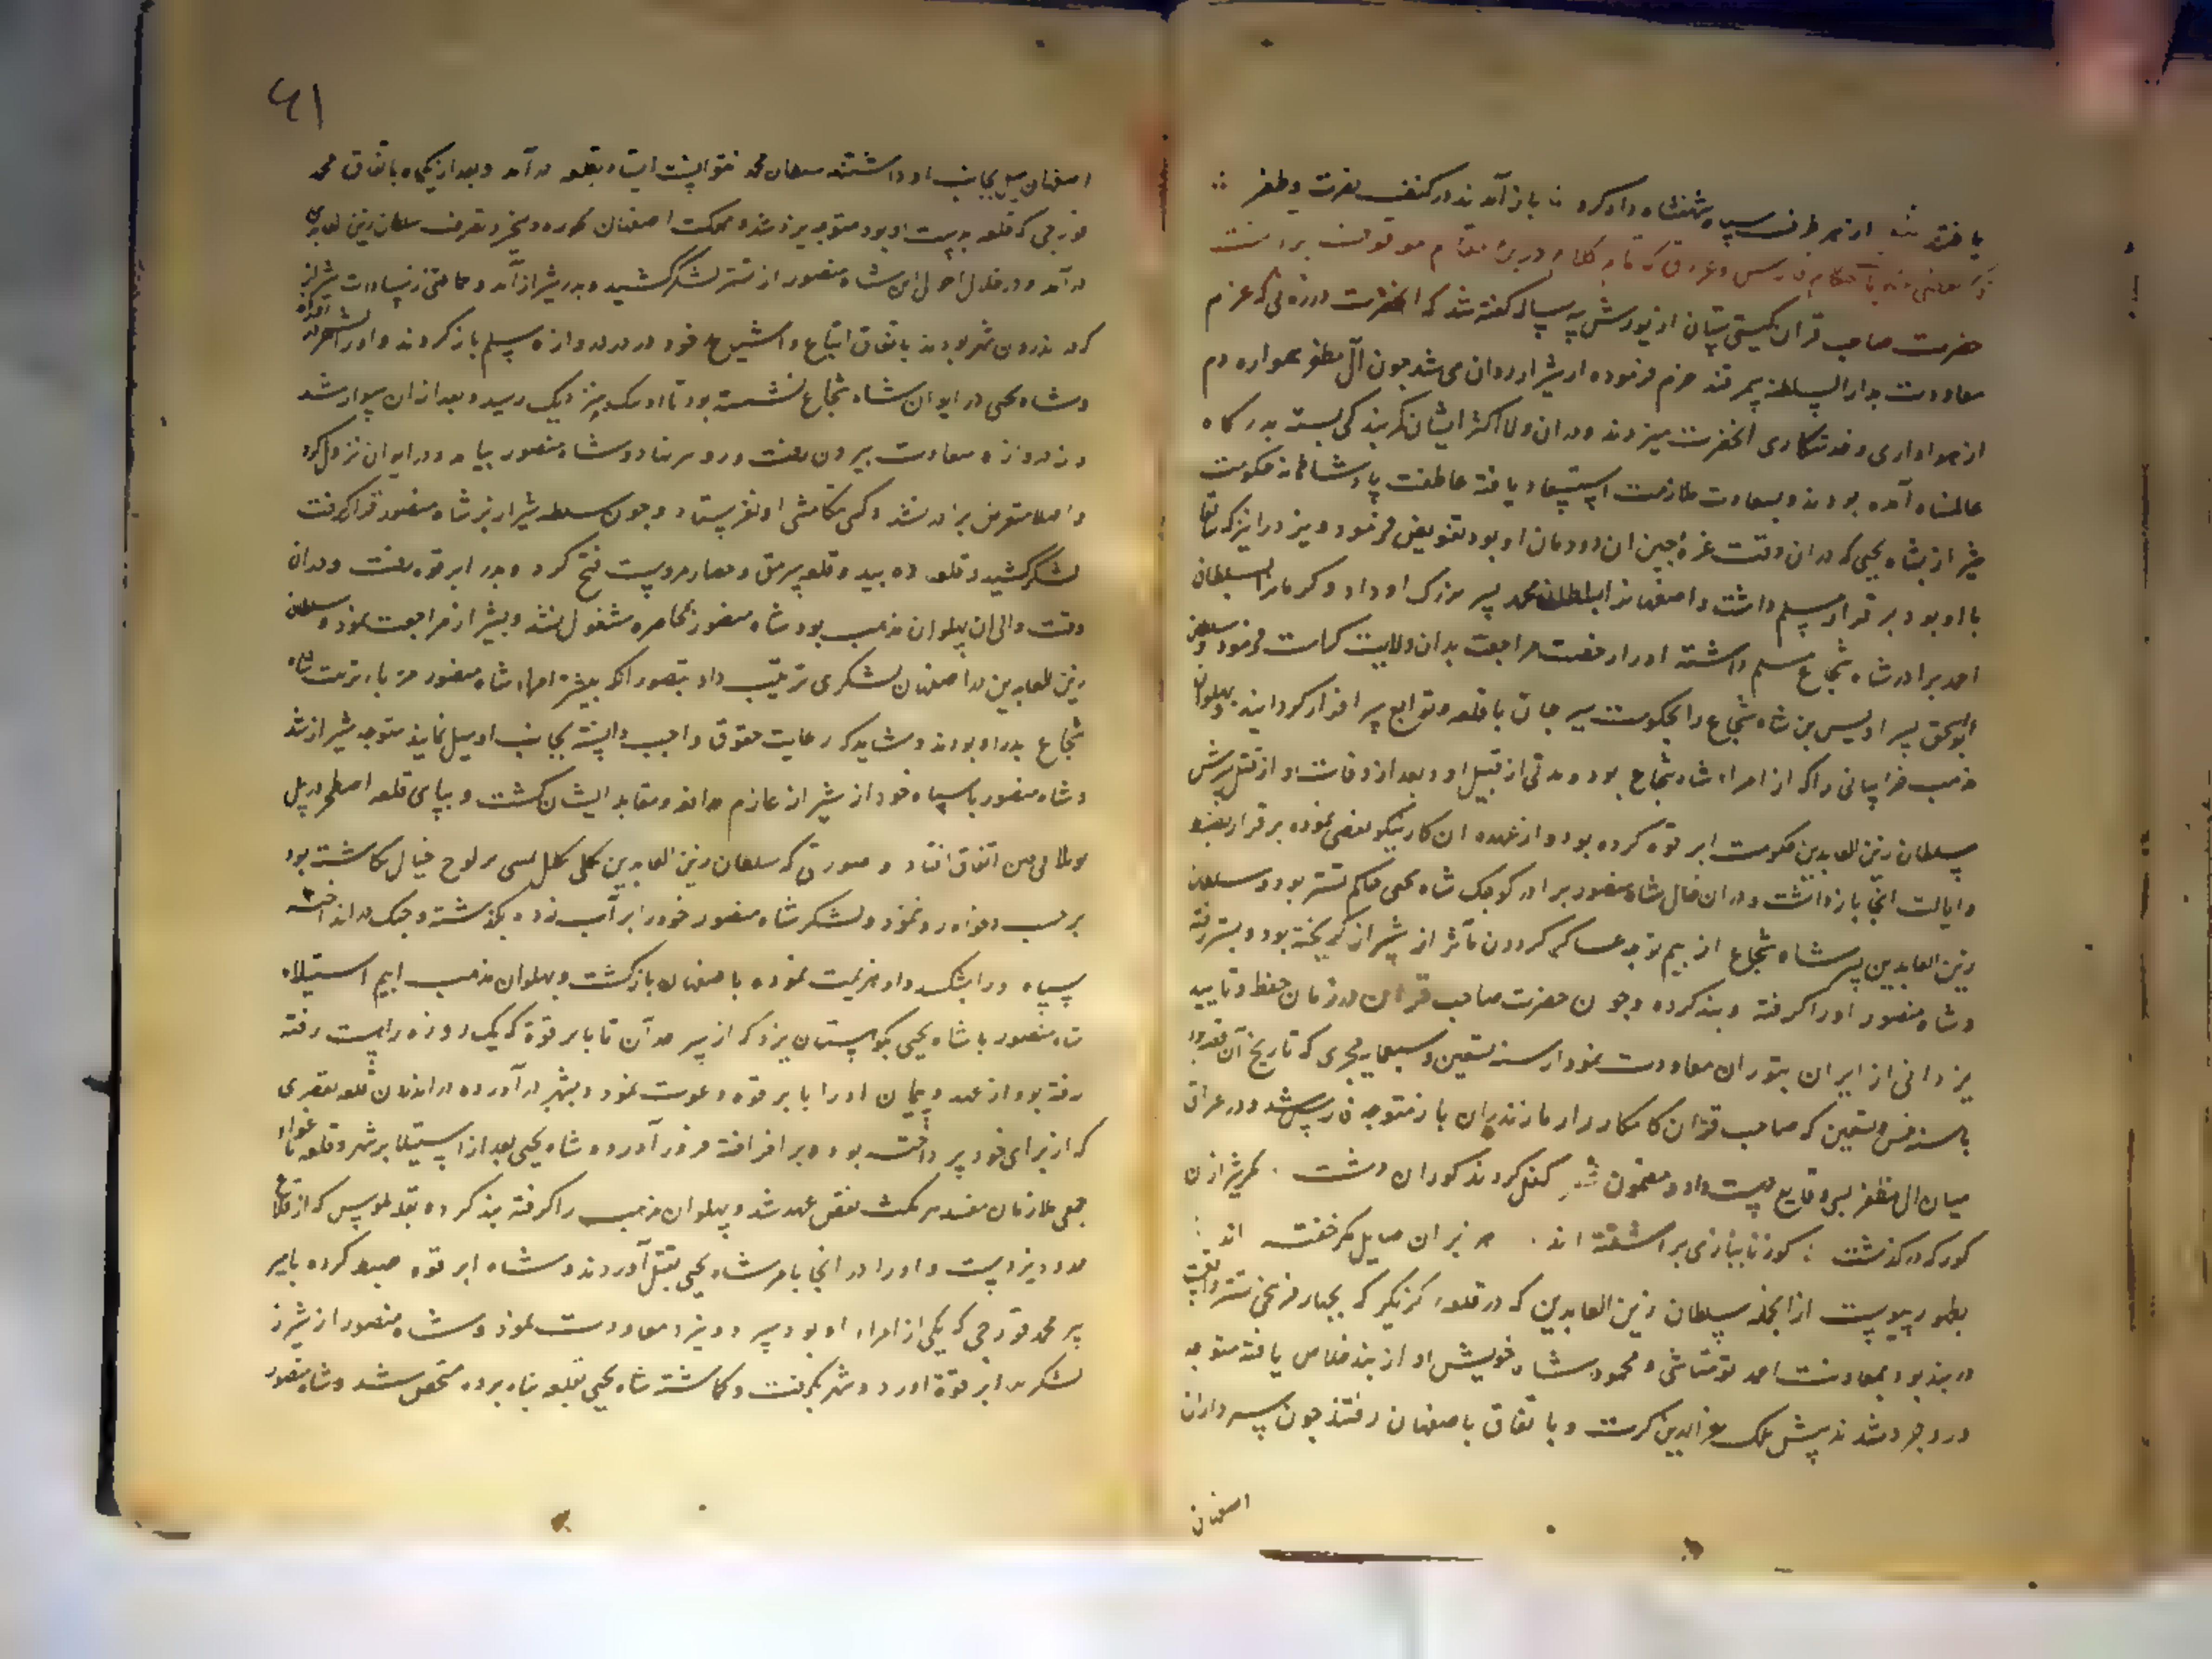 یافتند شد از هر طرف سپاه شهنشاه دادگر باز آمدند در کنف نصرت و ظفر
حضرت صاحب قران گیتی ستان از یورش سه ساله گفته شد که آنحضرت در زمانی که عزم
معاودت بدار السلطنه سمرقند جزم فرموده از شیراز روان می شد چون آل مظفر همواره دم
از هواداری و خدمتکاری آنحضرت میزدند و در ان ولا اکثر ایشان کمر بندگی بسته بدرگاه
عالمپناه آمده بودند و بسعادت ملازمت استسعاد یافته عاطفت پادشاهانه حکومت
شیراز بشاه یحیی که در ان وقت غره جبین ان دودمان او بود تفویض فرمود و یزد را نیز که
با او بود بر قرار مسلم داشت و اصفهانرا بسلطان محمد پسر بزرگ او داد و کرمانرا بسلطان
احمد برادر شاه شجاع مسلم داشته او را رخصت مراجعت بدان ولایت کرامت فرمود و سلطان
ابواسحق پسر اویس بن شاه شجاع را بحکومت سیرجان با قلعه و توابع سرافراز گردانید و پهلوان
مهذب خراسانی را که از امراء شاه شجاع بود و مدتی از قبیل او و بعد از وفات او از قبل پسرش
سلطان زین العابدین حکومت ابرقوه کرده بود و از عهده ان کار نیکو تفصی نموده بر قرار بضبط
و ایالت انجا بازداشت و در ان حال شاه منصور برادر کوچک شاه یحیی حاکم تستر بود و سلطان
زین العابدین پسر شاه شجاع از بیم توجه عساکر گردون مآثر از شیراز گریخته بود و بتستر رفته
و شاه منصور او را گرفته و بند کرده و چون حضرت صاحب قران در زمان حفظ و تایید
یزدانی از ایران بتوران معاودت نمود از سنه تسعین و سبعمایه هجری که تاریخ آن بود
تا سنه خمس و تسعین که صاحب قران کامکار از مازندران باز متوجه فارس شد و در عراق
میان ال مظفر بسی وقایع دست داد و مضمون شعر کفل گردند گوران دشت . مگر شیر از ان
گورگه درگذشت : گوزنان ببازی برآشفته اند . هزبران مایل مگر خفته اند :
بظهور پیوست از انجمله سلطان زین العابدین که در قلعه کرنگر که بچهار فرسخی تستر واقعست
در بند بود بمعاونت احمد توشتاشی و محمود شاه خویش او از بند خلاص یافته متوجه
وروجرد شدند پیش ملک عز الدین کرت و باتفاق باصفهان رفتند چون سرداران
اصفهان
۶۱
اصفهان میل بجانب او داشتند سلطان محمد نتوانست ایستاد بقلعه در آمد و بعد از یکماه باتفاق محمد
قورچی که قلعه بدست او بود متوجه یزد شد و مملکت اصفهان بتصرف سلطان زین العابدین
در آمد و در خلال احوال این شاه منصور از تستر لشکر کشید و بدر شیراز آمد و جماعتی از سادات شیراز
که در اندرون شهر بودند باتفاق اتباع و اشیاع خود در در دروازه سلم باز کردند و او را بشهر در
و شاه یحیی در ایوان شاه شجاع نشسته بود تا او نزدیک رسید و بعد از ان سوار شد
و از دروازه سعادت بیرون رفت و رو به یزد نهاد و شاه منصور بیامد و در ایوان نزول کرد
و اصلا متعرض برادر نشد و کس بتکامشی او نفرستاد و چون سلطنه شیراز بر شاه منصور قرار گرفت
لشکر کشید و قلعه ده بید و قلعه سرمق و حصار مروست فتح کرد و بدر ابرقوه رفت و در ان
وقت والی ان پهلوان مهذب بود شاه منصور بمحاصره مشغول نشد و بشیراز مراجعت نمود و سلطان
زین العابدین در اصفهان لشکری ترتیب داد بتصور انکه بیشتر امراء شاه منصور تربیت یافته شاه
شجاع پدر او بودند و شاید که رعایت حقوق واجب دانسته بجانب او میل نمایند متوجه شیراز شد
و شاه منصور با سپاه خود از شیراز عازم مدافعه و مقابله ایشان گشت و بپای قلعه اصطخر در پل
نو تلاقی فریقین اتفاق افتاد و صورتی که سلطان زین العابدین بر لوح خیال نگاشته بود
بر حسب دلخواه رو ننمود و لشکر شاه منصور خود را بر آب زده بگذشتند و جنگ در انداخته
سپاه او را بشکستند و او هزیمت نموده باصفهان بازگشت و پهلوان مهذب از بیم استیلاء
شاه منصور با شاه یحیی بکوهستان یزد که از سرحد آن تا ابرقوه که یک روزه راهست رفته
رفته بود از عهد و پیمان او را با ابرقوه دعوت نمود و بشهر در آورده در اندرون قلعه بقصری
که از برای خود پرداخته بود و برافراخته فرود آورد و شاه یحیی بعد از استیلا بر شهر و قلعه باغواء
جمعی ملازمان مفسد مرتکب نقض عهد شد و پهلوان مهذب را گرفته بند کرده بقلعه ملوس که از قلاع
حدود یزدست و او را در انجا بامر شاه یحیی بقتل آوردند و شاه ابرقوه ضبط کرده بامیر
پیر محمد قورچی که یکی از امراء او بود سپرد و بیزد معاودت نمود و شاه منصور از شیراز
لشکر بدر ابرقوه اورد و شهر بگرفت و گماشته شاه یحیی بقلعه پناه برده متحصن شد و شاه منصور